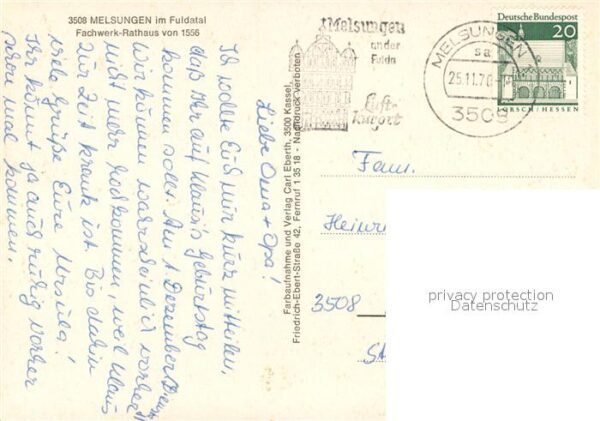 3508 MELSUNGEN im Fuldatal
Fachwerk-Rathaus von 1556
Liebe Oma + Opa!
Ich wollte Euch nur kurz mitteilen,
daß Ihr auf Klaus's Geburtstag
kommen sollt. Am 1. Dezember
Wir können warscheinlich vorher
nicht mehr kommen, weil Klaus
zur Zeit krank ist. Bis dahin
viele Grüße Eure Ursula!
Ihr könnt ja auch ruhig vorher
schon mal kommen.
Farbaufnahme und Verlag Carl Eberth, 3500 Kassel,
Friedrich-Ebert-Straße 42, Fernruf 1 35 18 - Nachdruck verboten
Melsungen
an der
Fulda
Luft-
Kurort
MELSUNGEN 1
sa
25.11.70
3508
Deutsche Bundespost
20
LORSCH/HESSEN
Fam.
Heinr
3508
privacy protection
Datenschutz